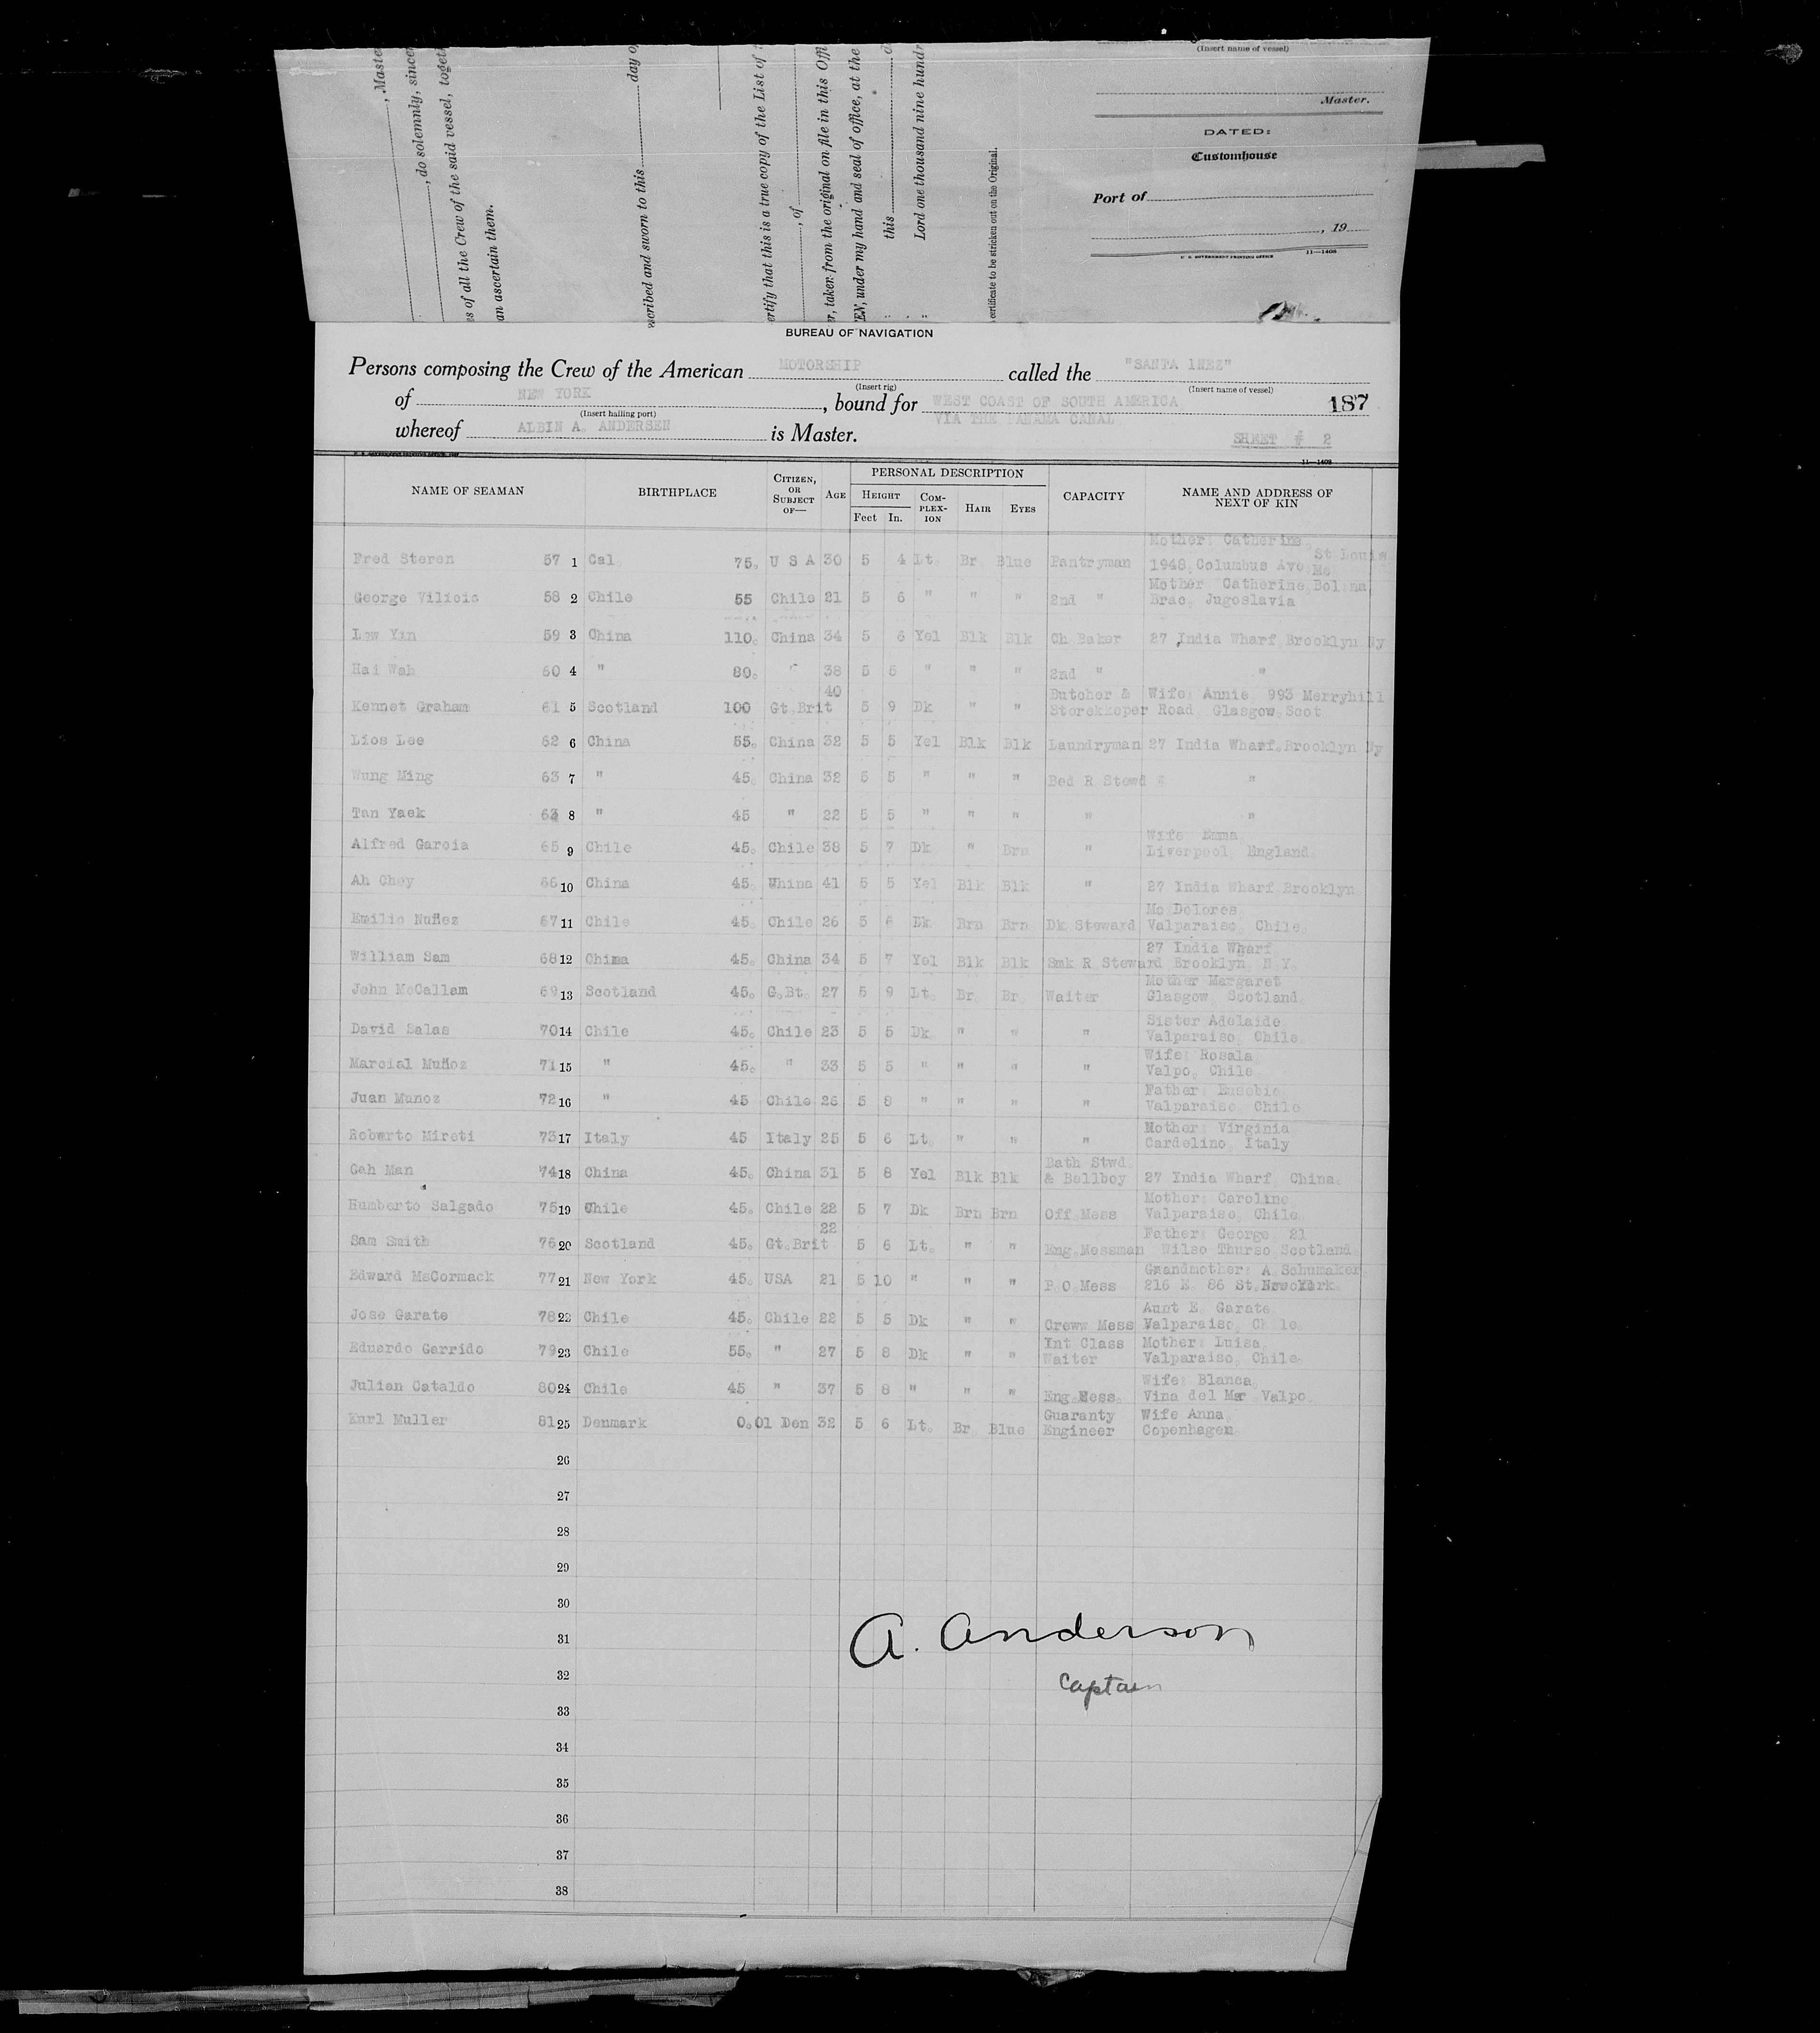 (Insert name of vessel)
Master.
DATED:
Customhouse
Port of
, 19
U. S. GOVERNMENT PRINTING OFFICE 11—1408
, Maste
, do solemnly, since
s of all the Crew of the said vessel, toget
an ascertain them.
day o
scribed and sworn to this
ertify that this is a true copy of the List of
, of
r, taken from the original on file in this Offi
EN, under my hand and seal of office, at the
this
Lord one thousand nine hundr
ertificate to be stricken out on the Original.
BUREAU OF NAVIGATION
Persons composing the Crew of the American MOTORSHIP called the "SANTA INEZ"
(Insert rig) (Insert name of vessel)
of NEW YORK, bound for WEST COAST OF SOUTH AMERICA 187
(Insert hailing port) VIA THE PANAMA CANAL
whereof ALBIN A. ANDERSEN is Master.
SHEET # 2
11—1408
NAME OF SEAMAN BIRTHPLACE CITIZEN, OR SUBJECT OF— AGE PERSONAL DESCRIPTION CAPACITY NAME AND ADDRESS OF NEXT OF KIN
HEIGHT COM-PLEX-ION HAIR EYES
Feet In.
Mother: Catherine
Fred Steren 57 1 Cal 75. U S A 30 5 4 Lt. Br Blue Pantryman 1948 Columbus Ave St Louis Mo
Mother Catherine Bol na
George Vilicic 58 2 Chile 55 Chile 21 5 6 " " " 2nd " Brac, Jugoslavia
Low Yin 59 3 China 110. China 34 5 6 Yel Blk Blk Ch Baker 27 India Wharf Brooklyn Ny
Hai Wah 60 4 " 80. " 38 5 5 " " " 2nd " "
40 Butcher & Wife: Annie 993 Merryhill
Kennet Graham 61 5 Scotland 100 Gt Brit 5 9 Dk " " Storekkeper Road, Glasgow, Scot
Lios Lee 62 6 China 55. China 32 5 5 Yel Blk Blk Laundryman 27 India Wharf. Brooklyn Ny
Wung Ming 63 7 " 45. China 32 5 5 " " " Bed R Stewd "
Tan Yaek 64 8 " 45 " 22 5 5 " " " " "
Wife Emma
Alfred Garcia 65 9 Chile 45. Chile 38 5 7 Dk " Brn " Liverpool, England.
Ah Choy 66 10 China 45. China 41 5 5 Yel Blk Blk " 27 India Wharf Brooklyn.
Mo Dolores
Emilio Nuñez 67 11 Chile 45. Chile 26 5 6 Dk Brn Brn Dk Steward Valparaiso, Chile.
27 India Wharf
William Sam 68 12 China 45. China 34 5 7 Yel Blk Blk Smk R Steward Brooklyn N.Y.
Mother Margaret
John McCallam 69 13 Scotland 45. G.Bt. 27 5 9 Lt. Br. Br. Waiter Glasgow Scotland.
Sister Adelaide
David Salas 70 14 Chile 45. Chile 23 5 5 Dk " " " Valparaiso, Chile.
Wife: Rosala
Marcial Muñoz 71 15 " 45. " 33 5 5 " " " " Valpo, Chile.
Father: Eusebio
Juan Munoz 72 16 " 45 Chile 26 5 8 " " " " Valparaiso, Chile
Mother: Virginia
Roberto Mireti 73 17 Italy 45 Italy 25 5 6 Lt. " " " Cardelino, Italy
Bath Stwd.
Gah Man 74 18 China 45. China 31 5 8 Yel Blk Blk & Bellboy 27 India Wharf, China.
Mother: Caroline
Humberto Salgado 75 19 Chile 45. Chile 22 5 7 Dk Brn Brn Off Mess Valparaiso, Chile.
22 Father: George, 21
Sam Smith 76 20 Scotland 45. Gt. Brit 5 6 Lt. " " Eng. Messman Wilso Thurso Scotland
Grandmother: A. Schumaker
Edward McCormack 77 21 New York 45. USA 21 5 10 " " " P.O.Mess 216 E. 86 St. New York.
Aunt E. Garate
Jose Garate 78 22 Chile 45. Chile 22 5 5 Dk " " Creww Mess Valparaiso, Chile.
Int Class Mother: Luisa,
Eduardo Garrido 79 23 Chile 55. " 27 5 8 Dk " " Waiter Valparaiso, Chile.
Wife: Blanca
Julian Cataldo 80 24 Chile 45 " 37 5 8 " " " Eng. Mess. Vina del Mar Valpo.
Guaranty Wife Anna.
Kurl Muller 81 25 Denmark 0.01 Den 32 5 6 Lt. Br. Blue Engineer Copenhagen.
26
27
28
29
30
31
32
33
34
35
36
37
38
A. Anderson
Captain